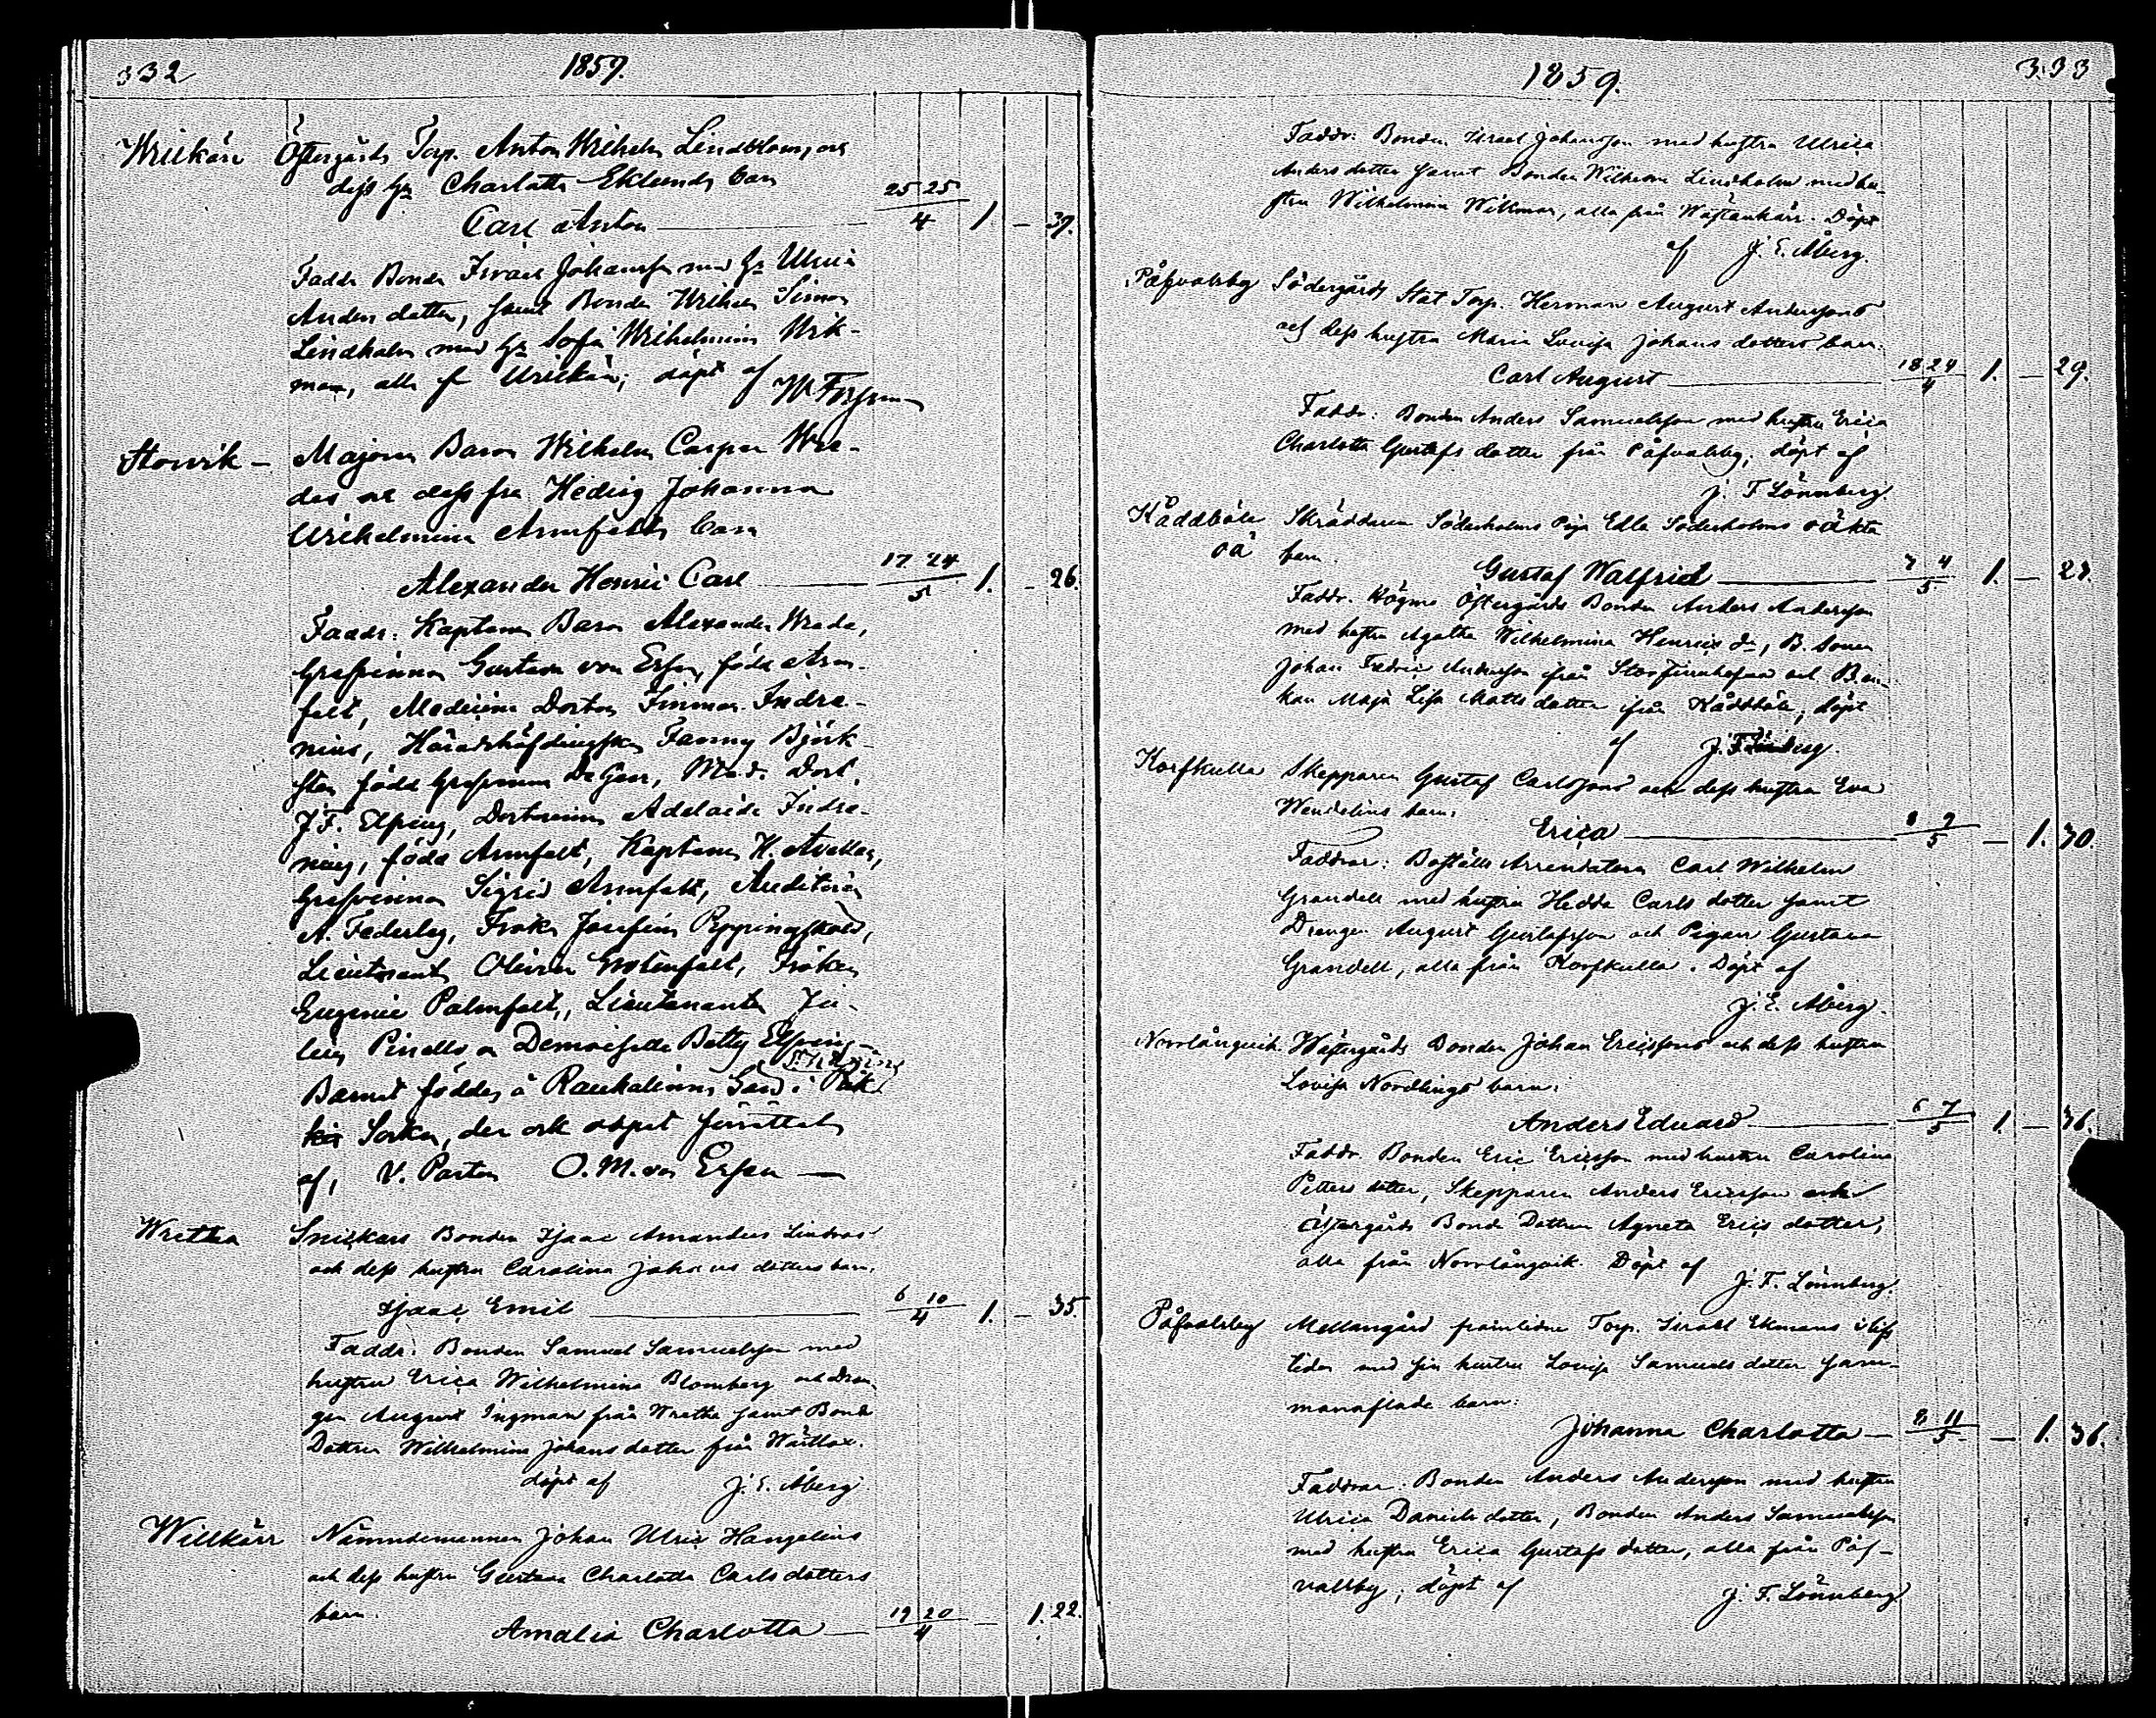 332 1859.
Willkärr Östergårds Torp. Anton Wilhelm Lindbloms och
dess h. Charlotta Eklunds barn
Carl Anton 25 25/4 1. – 37.
Fadd. Bonden Israel Johansson med h. Ulrica
Anders dotter, samt Bonden Wilhelm Simon
Lindholm med h. Sofia Wilhelmina Wik-
man, alla fr. Willkärr; döpt af
Storvik – Majoren Baron Wilhelm Casper Wre-
des och dess fru Hedvig Johanna
Wilhelmina Armfelts barn
Alexander Henric Carl 17 24/5 1. – 26.
Faddr: Kaptenen Baron Alexander Wrede,
Grefvinnan Gustava von Essen, född Arm-
felt, Medicine Doctor Immar. Indre-
nius, Häradshöfdingskan Fanny Björk-
sten född Grefvinna De Geer, Med. Doct.
J. F. Elfving, Doctorinnan Adelaide Indre-
nius, född Armfelt, Kaptenen H. Avellan,
Grefvinnan Sigrid Armfelt, Auditören
A. Federley, Fröken Josefine Peppingsköld,
Lieutenant Oliver Grotenfelt, Fröken
Eugenie Palmfelt, Lieutenanten Ju-
lius Pinello o Demoiselle Betty Elfving –
Barnet föddes å Rauhalinna Gård i
Socken, der ock dopet förrättats
af, V. Pastor O. M. von Essen —
Wretha Snickars Bonden Isaac Amandus Lindroos
och dess hustru Carolina Johans dotters barn,
Isaac Emil 6 10/4 1. – 35.
Faddr: Bonden Samuel Samuelsson med
hustru Erica Wilhelmina Blomberg och Dren-
gen August Ingman från Wretha samt Bonde
Dottren Wilhelmina Johans dotter från Wättlax.
döpt af J. E. Åberg
Willkärr Nämndemannen Johan Ulric Hangelins
och dess hustru Gustava Charlotta Carls dotters
barn.
Amalia Charlotta 19 20/4 – 1. 22.
1859. 333
Faddr: Bonden Israel Johansson med hustru Ulrica
Anders dotter samt Bonden Wilhelm Lindholm med hu-
stru Wilhelmina Wikman, alla från Wästankärr. Döpt
af J. E. Åberg.
Påfvalsby Södergårds Stat Torp. Herman August Anderssons
och dess hustru Maria Lovisa Johans dotters barn.
Carl August 18 24/4 1. – 29.
Faddr: Bonden Anders Samuelsson med hustru Erica
Charlotta Gustafs dotter från Påfvalsby; döpt af
J. F. Lönnberg
Kåddböle Skräddaren Söderholms Piga Edla Söderholms oäkta
oä barn.
Gustaf Walfrid 3 4/5 1. – 27.
Faddr. Högmo Östergårds Bonden Anders Andersson
med hustru Agatha Wilhelmina Henrics dr, B. Sonen
Johan Fredric Andersson från Storfinnhofva och B.en-
kan Maja Lisa Matts dotter ifrån Kåddböle; döpt
af J. F. Lönnberg.
Korfkulla Skepparen Gustaf Carlssons och dess hustru Eva
Wendelins barn.
Erica 8 9/5 – 1. 30.
Faddrar: Boställs Arrendatorn Carl Wilhelm
Grandell med hustru Hedda Carls dotter samt
Drengen August Gustafsson och Pigan Gustava
Grandell, alla från Korfkulla. Döpt af
J. E. Åberg.
Norrlångvik. Wästergårds Bonden Johan Ericssons och dess hustru
Lovisa Nordlings barn.
Anders Eduard 6 7/5 1. – 36.
Faddr. Bonden Eric Ericsson med hustru Carolina
Petters dotter, Skepparen Anders Ericsson och
Östergårds Bonde Dottren Agneta Erics dotter,
alla från Norrlångvik. Döpt af
J. F. Lönnberg.
Påfvalsby Mellangård framlidne Torp. Israel Ekmans i lifs
tiden med sin hustru Lovisa Samuels dotter sam-
manaflade barn.
Johanna Charlotta 8 11/5 – 1. 36.
Faddrar. Bonden Anders Andersson med hustru
Ulrica Daniels dotter, Bonden Anders Samuelsson
med hustru Erica Gustafs dotter, alla från Påf-
valsby; döpt af J. F. Lönnberg